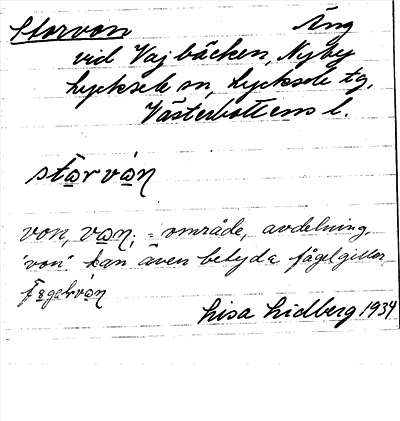 Storvon Äng
vid Vajbäcken, Nyby
Lycksele sn, Lycksele tg,
Västerbottens l.
stɑ̀rvɑ́n
von, vɑn; = område, avdelning,
"von" kan även betyda fågelgiller,
fɑ̀gelvɑn
Lisa Lidberg 1934